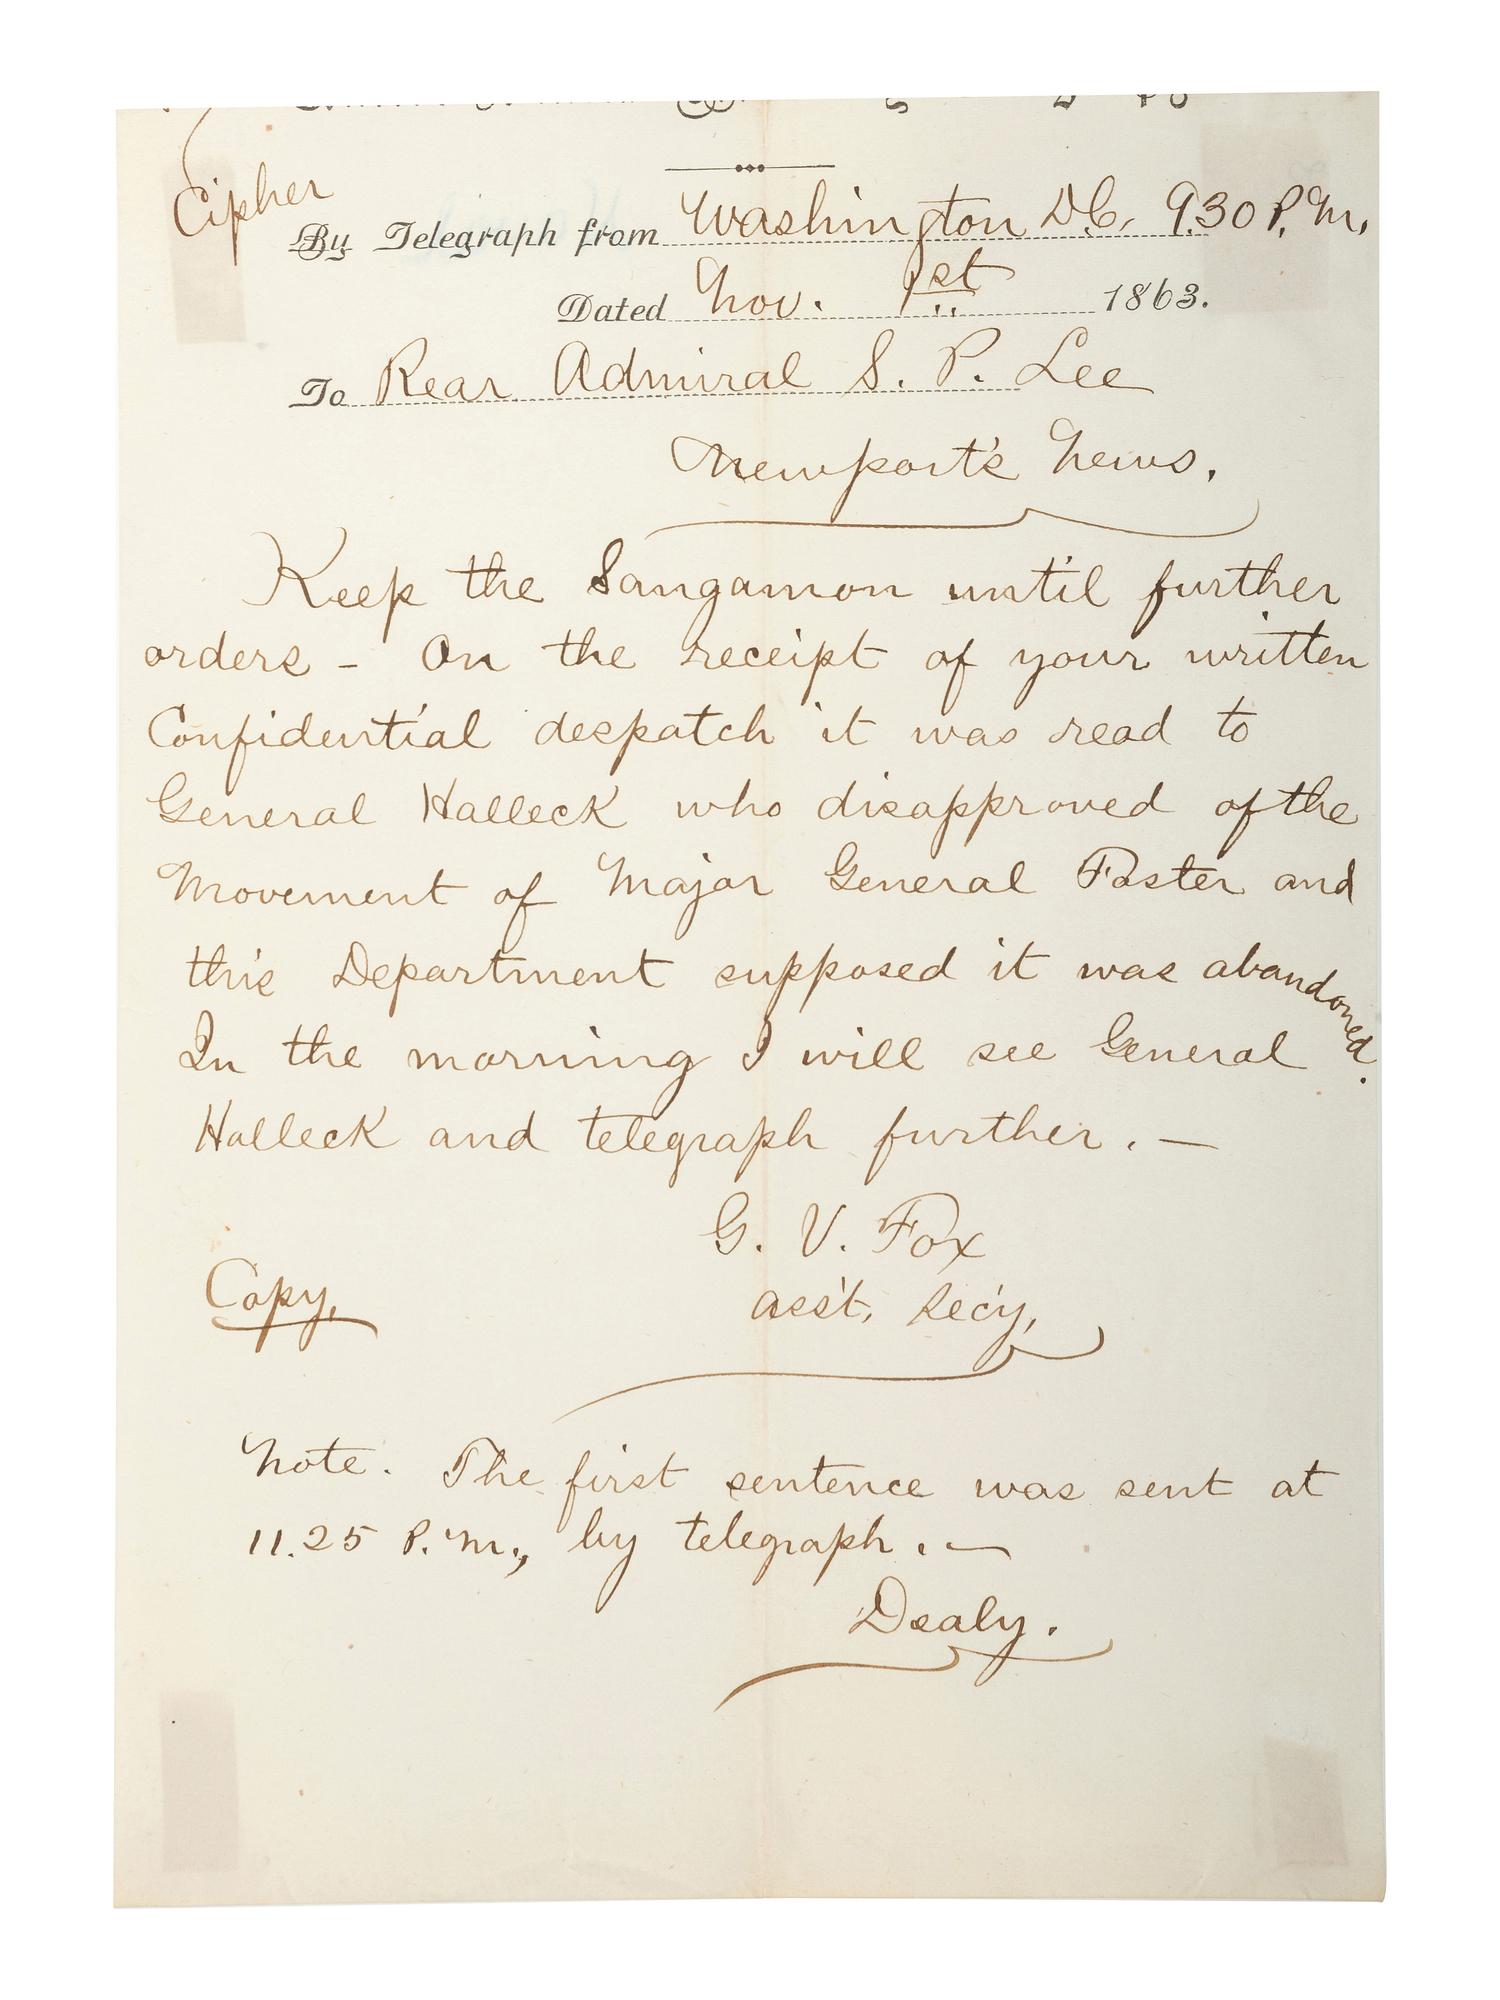 Cipher
By Telegraph from Washington D.C. 9.30 P.M.
Dated Nov. 1st 1863.
To Rear Admiral S. P. Lee
Newport's News.
Keep the Sangamon until further
orders - On the receipt of your written
Confidential despatch it was read to
General Halleck who disapproved of the
Movement of Major General Foster and
this Department supposed it was abandoned.
In the morning I will see General
Halleck and telegraph further. —
G. V. Fox
Copy.
Ass't. Sec'y,
Note. The first sentence was sent at
11.25 P.M., by telegraph. —
Dealy.